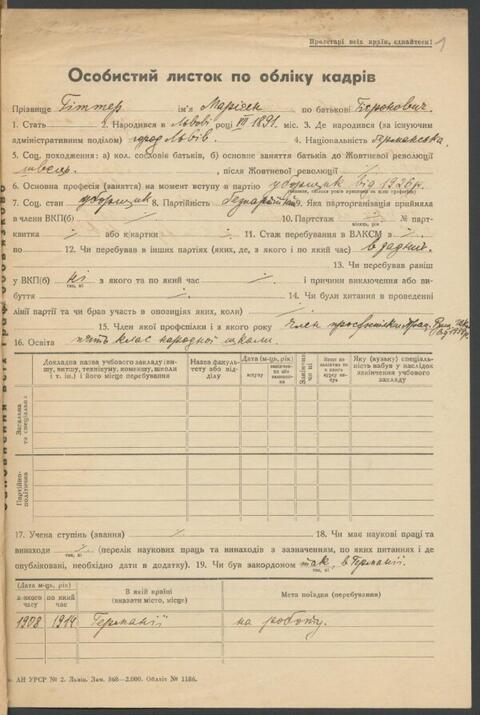 Пролетарі всіх країн, єднайтеся! 1
Особистий листок по обліку кадрів
Прізвище Гіттер ім'я Марієн по батькові
1. Стать 2. Народився в Львові році VII 1891. міс. 3. Де народився (за існуючим
адміністративним поділом) город Львів. 4. Національність
5. Соц. походження: а) кол. сословія батьків, б) основне заняття батьків до Жовтневої революції
швець. , після Жовтневої революції
6. Основна професія (заняття) на момент вступу в партію уборщик від 1926 р.
7. Соц. стан уборщик 8. Партійність безпартійний 9. Яка парторганізація прийняла
в члени ВКП(б) 10. Партстаж № парт-
квитка або к/картки 11. Стаж перебування в ВЛКСМ з
по 12. Чи перебував в інших партіях (яких, де, з якого і по який час) в жадній.
13. Чи перебував раніш
у ВКП(б) ні з якого та по який час і причини виключення або ви-
буття 14. Чи були хитання в проведенні
лінії партії та чи брав участь в опозиціях яких, коли)
15. Член якої профспілки і з якого року Член профспілки
16. Освіта п'ять клас народної школи.
Докладна назва учбового закладу (ви-
шу, втишу, технікуму, комвишу, школи
і т. ін.) і його місце перебування
Назва факуль-
тету або від-
ділу
Дата (м-ць, рік)
вступу
закінчен-
ня або
Закінчив
чи ні
Яку (вузьку) спеціаль-
ність набув у наслідок
закінчення учбового
закладу
Загальна
та спеціальна
Партійно-
політична
17. Учена ступінь (звання) 18. Чи має наукові праці та
винаходи (перелік наукових праць та винаходів з зазначенням, по яких питаннях і де
опубліковані, необхідно дати в додатку). 19. Чи був закордоном так, в Германії.
(Дата м-ць, рік)
з якого
часу
по який
час
В якій країні
(вказати місто, місце)
Мета поїздки (перебування)
1908 1914 Германії на роботу.
АН УРСР № 2. Львів. Зам. 868—2.000. Обліт № 1186.